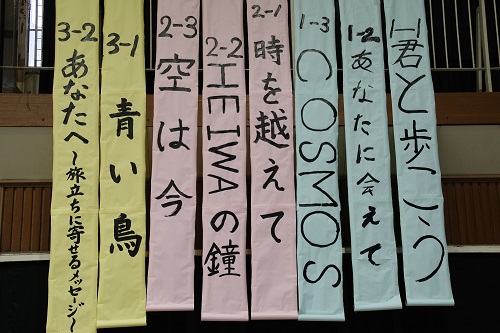 1-1 君と歩こう
1-2 あなたに会えて
1-3 COSMOS
2-1 時を越えて
2-2 HEIWAの鐘
2-3 空は今
3-1 青い鳥
3-2 あなたへ～旅立ちに寄せるメッセージ～